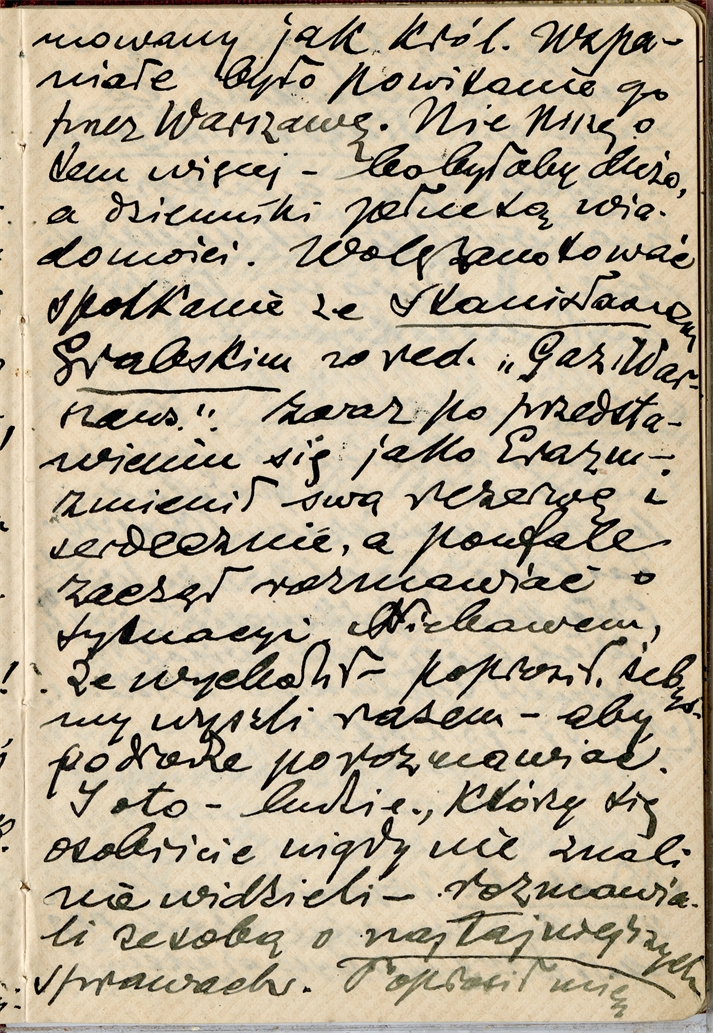 mowany jak król. Wspa-
niałe było powitanie go
przez Warszawę. Nie piszę o
tem więcej - bo byłoby dużo,
a dzienniki pełne są wia-
domości. Wolę zanotować
spotkanie ze Stanisławem
Grabskim w red. „Gaz. War-
szaws.". Zaraz po przedsta-
wieniu się jako Erazm -
zmienił swą rezerwę i
serdecznie, a poufale
zaczął rozmawiać o
sytuacyi.
że wychodził - poprosił, żebyś-
my wyszli razem - aby
po drodze porozmawiać.
I oto - ludzie, którzy się
osobiście nigdy nie znali
nie widzieli - rozmawia-
li ze sobą o najtajniejszych
sprawach. Poprosił mię